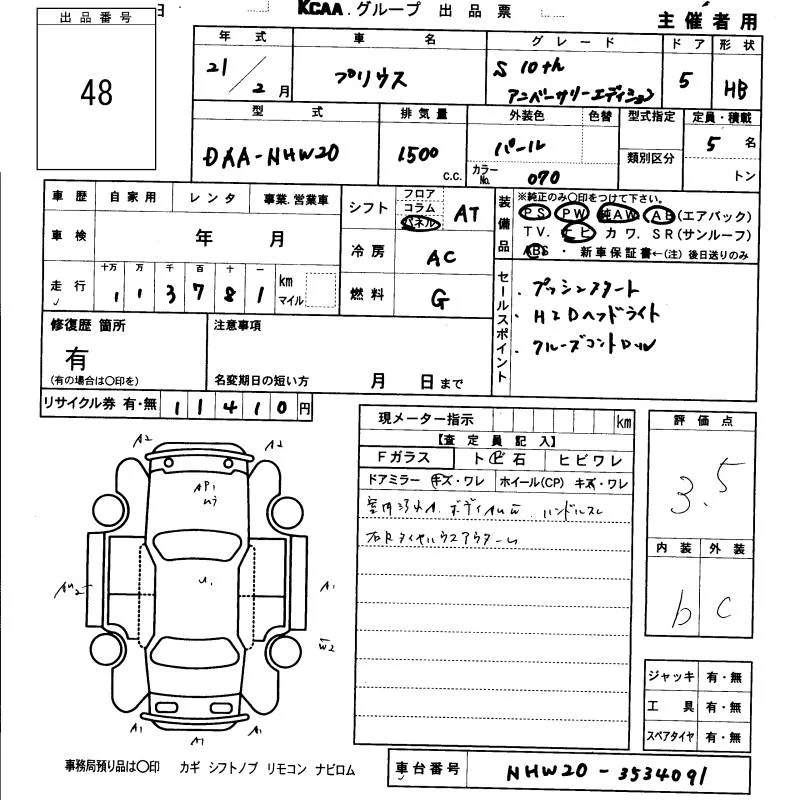 KCAA.グループ 出品票
主催者用
出品番号
48
年式 車名 グレード ドア 形状
21/2月 プリウス S 10th アニバーサリーエディション 5 HB
型式 排気量 外装色 色替 型式指定 定員・積載
DAA-NHW20 1500 c.c. パール カラーNo. 070 類別区分 5名 トン
車歴 自家用 レンタ 事業.営業車
車検 年 月
走行 十万 万 千 百 十 一 km マイル
1 1 3 7 8 1
シフト フロア コラム パネル AT
冷房 AC
燃料 G
装備品
※純正のみ○印をつけて下さい。
PS PW 純AW AB(エアバック)
TV. ナビ カワ. SR(サンルーフ)
ABS・新車保証書←(注)後日送りのみ
セールスポイント
・プッシュスタート
・HIDヘッドライト
・クルーズコントロール
修復歴 箇所
有
(有の場合は○印を)
注意事項
名変期日の短い方 月 日まで
リサイクル券 有・無 11410円
現メーター指示 km
【査定員記入】
Fガラス トビ石 ヒビワレ
ドアミラー キズ・ワレ ホイール(CP) キズ・ワレ
ハンドルスレ
評価点
3.5
内装 外装
b c
ジャッキ 有・無
工具 有・無
スペアタイヤ 有・無
A2 A2
AP1
U1
A1
W2
A1 A1 A1
事務局預り品は○印 カギ シフトノブ リモコン ナビロム
車台番号 NHW20-3534091